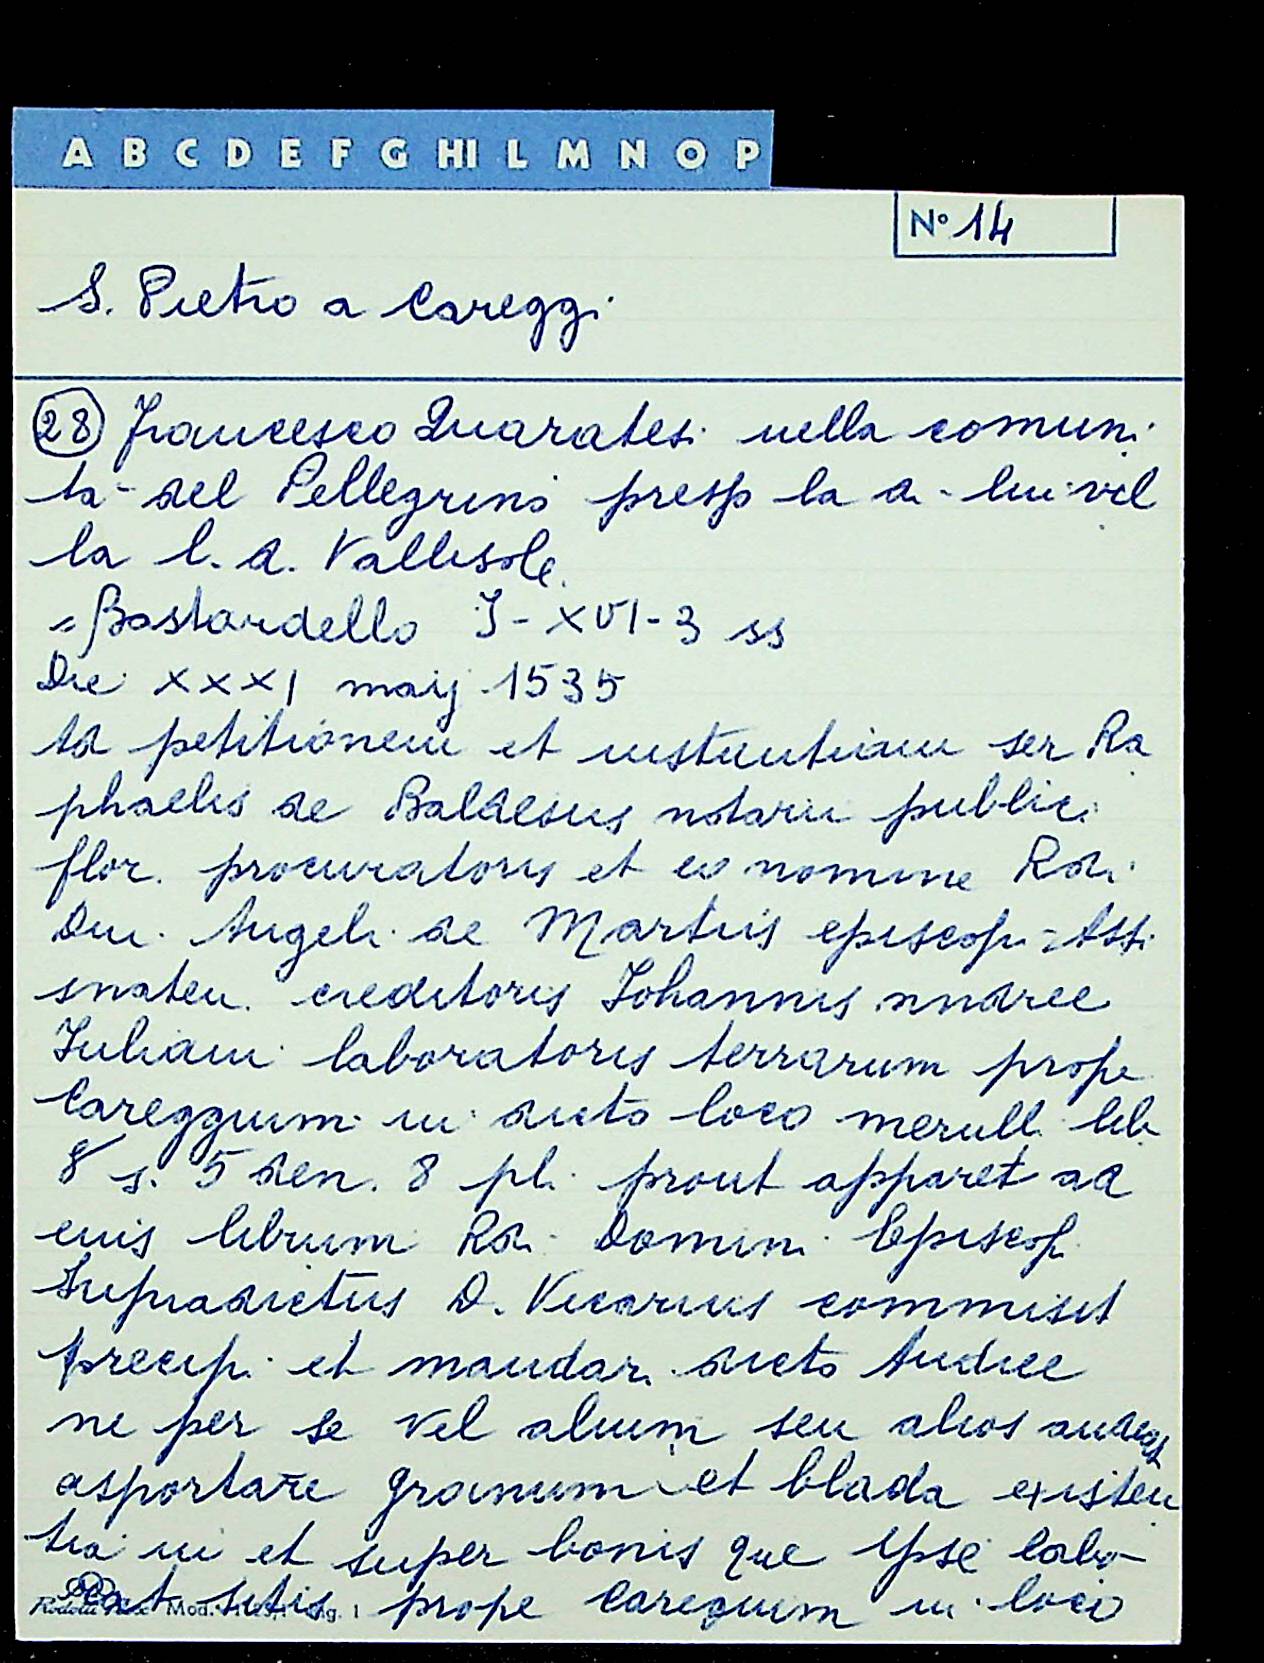 A B C D E F G HI L M N O P
N° 14
S. Pietro a Careggi
28 Francesco Quaratesi nella comuni
ta del Pellegrino presp la d. lui vil
la l. d. Vallisole.
Bastardello I-XVI-3 ss
Die XXXI maij 1535
Ad petitionem et instantiam ser Ra
phaelis de Baldesius notarii public.
flor. procuratoris et eo nomine Rdi.
Dni. Angeli de Martiis episcopi Assi
snaten. creditoris Johannis nndree
Iuliani laboratoris terrarum prope
Careggium in dicto loco merull lib
8 s. 5 den. 8 pli prout apparet ad
euis librum Rdi. Domini Episcop.
Supradictus D. Vicarius commisit
precip. et mandar. dicto Andree
ne per se vel alium seu alios audeat
asportare granum et blada existen
tia in et super bonis que ipse labo-
rat sitis prope careguum in loco